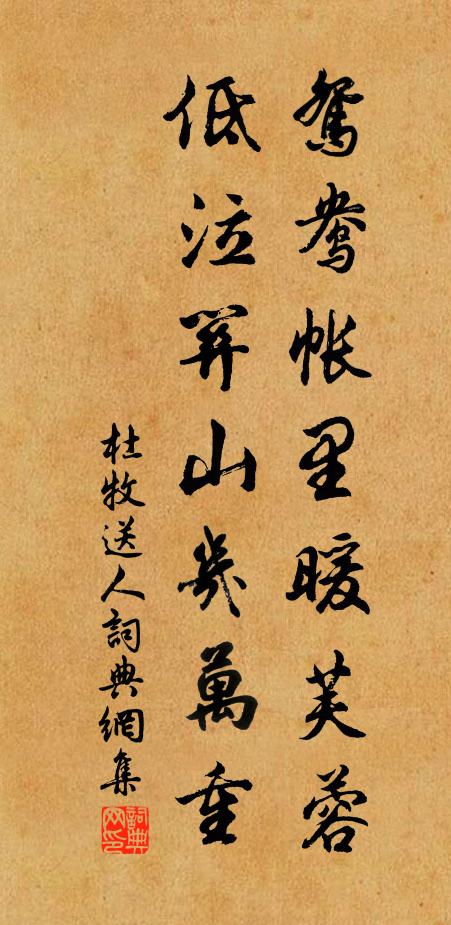 鴛鴦帳里暖芙蓉
低泣關山幾萬重
杜牧送人詞典網集
詞典网印